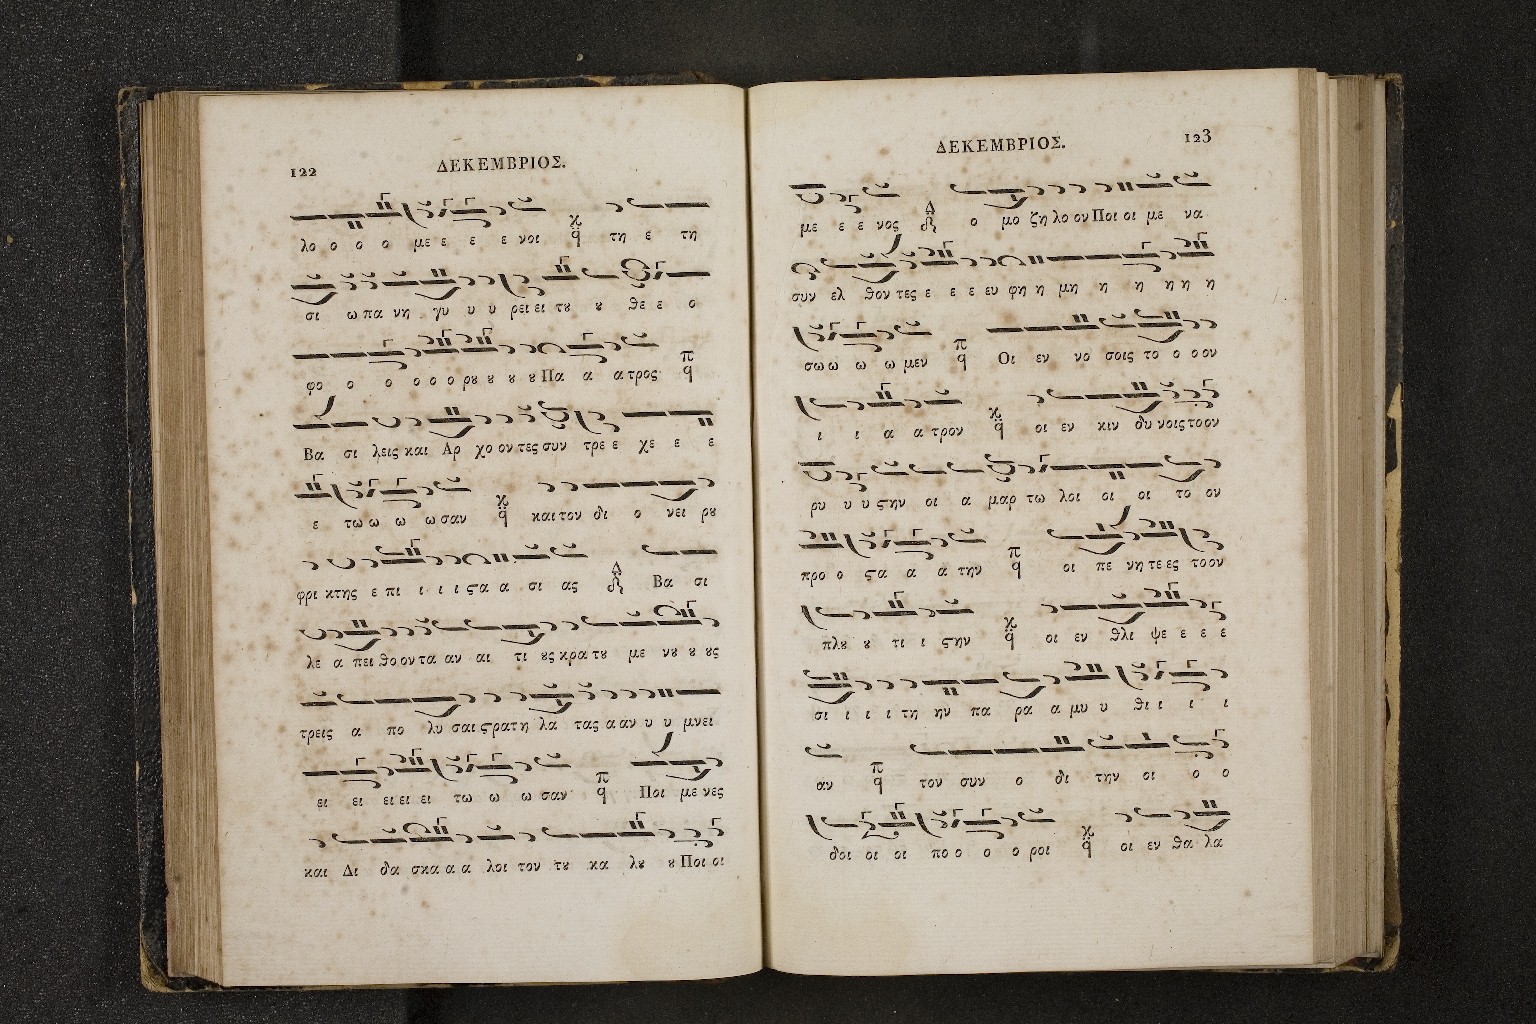 122
ΔΕΚΕΜΒΡΙΟΣ.
λο ο ο ο με ε ε ε νοι κ̈ q̈ τη ε τη
σι ω πα νη γυ υ υ ρει ει τȣ ȣ θε ε ο
φο ο ο ο ο ο ρȣ ȣ ȣ ȣ Πα α α τρος π q
Βα σι λεις και Αρ χο ον τες συν τρε ε χε ε ε
ε τω ω ω ω σαν κ̈ q̈ και τον δι ο νει ρȣ
φρι κτης ε πι ι ι ι ϛα α σι ας Δ Βα σι
λε α πει θο ον τα αν αι τι ȣς κρα τȣ με νȣ ȣ ȣς
τρεις α πο λυ σαι ϛρα τη λα τας α αν υ υ μνει
ει ει ει ει ει τω ω ω σαν π q Ποι με νες
και Δι δα σκα α α λοι τον τȣ κα λȣ ȣ Ποι οι
123
ΔΕΚΕΜΒΡΙΟΣ.
με ε ε νος Δ ο μο ζη λο ον Ποι οι με να
συν ελ θον τες ε ε ε ευ φη η μη η η η η η
σω ω ω ω μεν π q Οι εν νο σοις το ο ο ον
ι ι α α τρον κ̈ q̈ οι εν κιν δυ νοις το ον
ρυ υ υ ϛην οι α μαρ τω λοι οι οι το ον
προ ο ϛα α α την π q οι πε νη τε ες το ον
πλȣ ȣ τι ι ϛην κ̈ q̈ οι εν θλι ψε ε ε ε
σι ι ι ι τη ην πα ρα α μυ υ θι ι ι ι
αν π q τον συν ο δι την οι ο ο
δοι οι οι πο ο ο ο ροι κ̈ q̈ οι εν θα λα